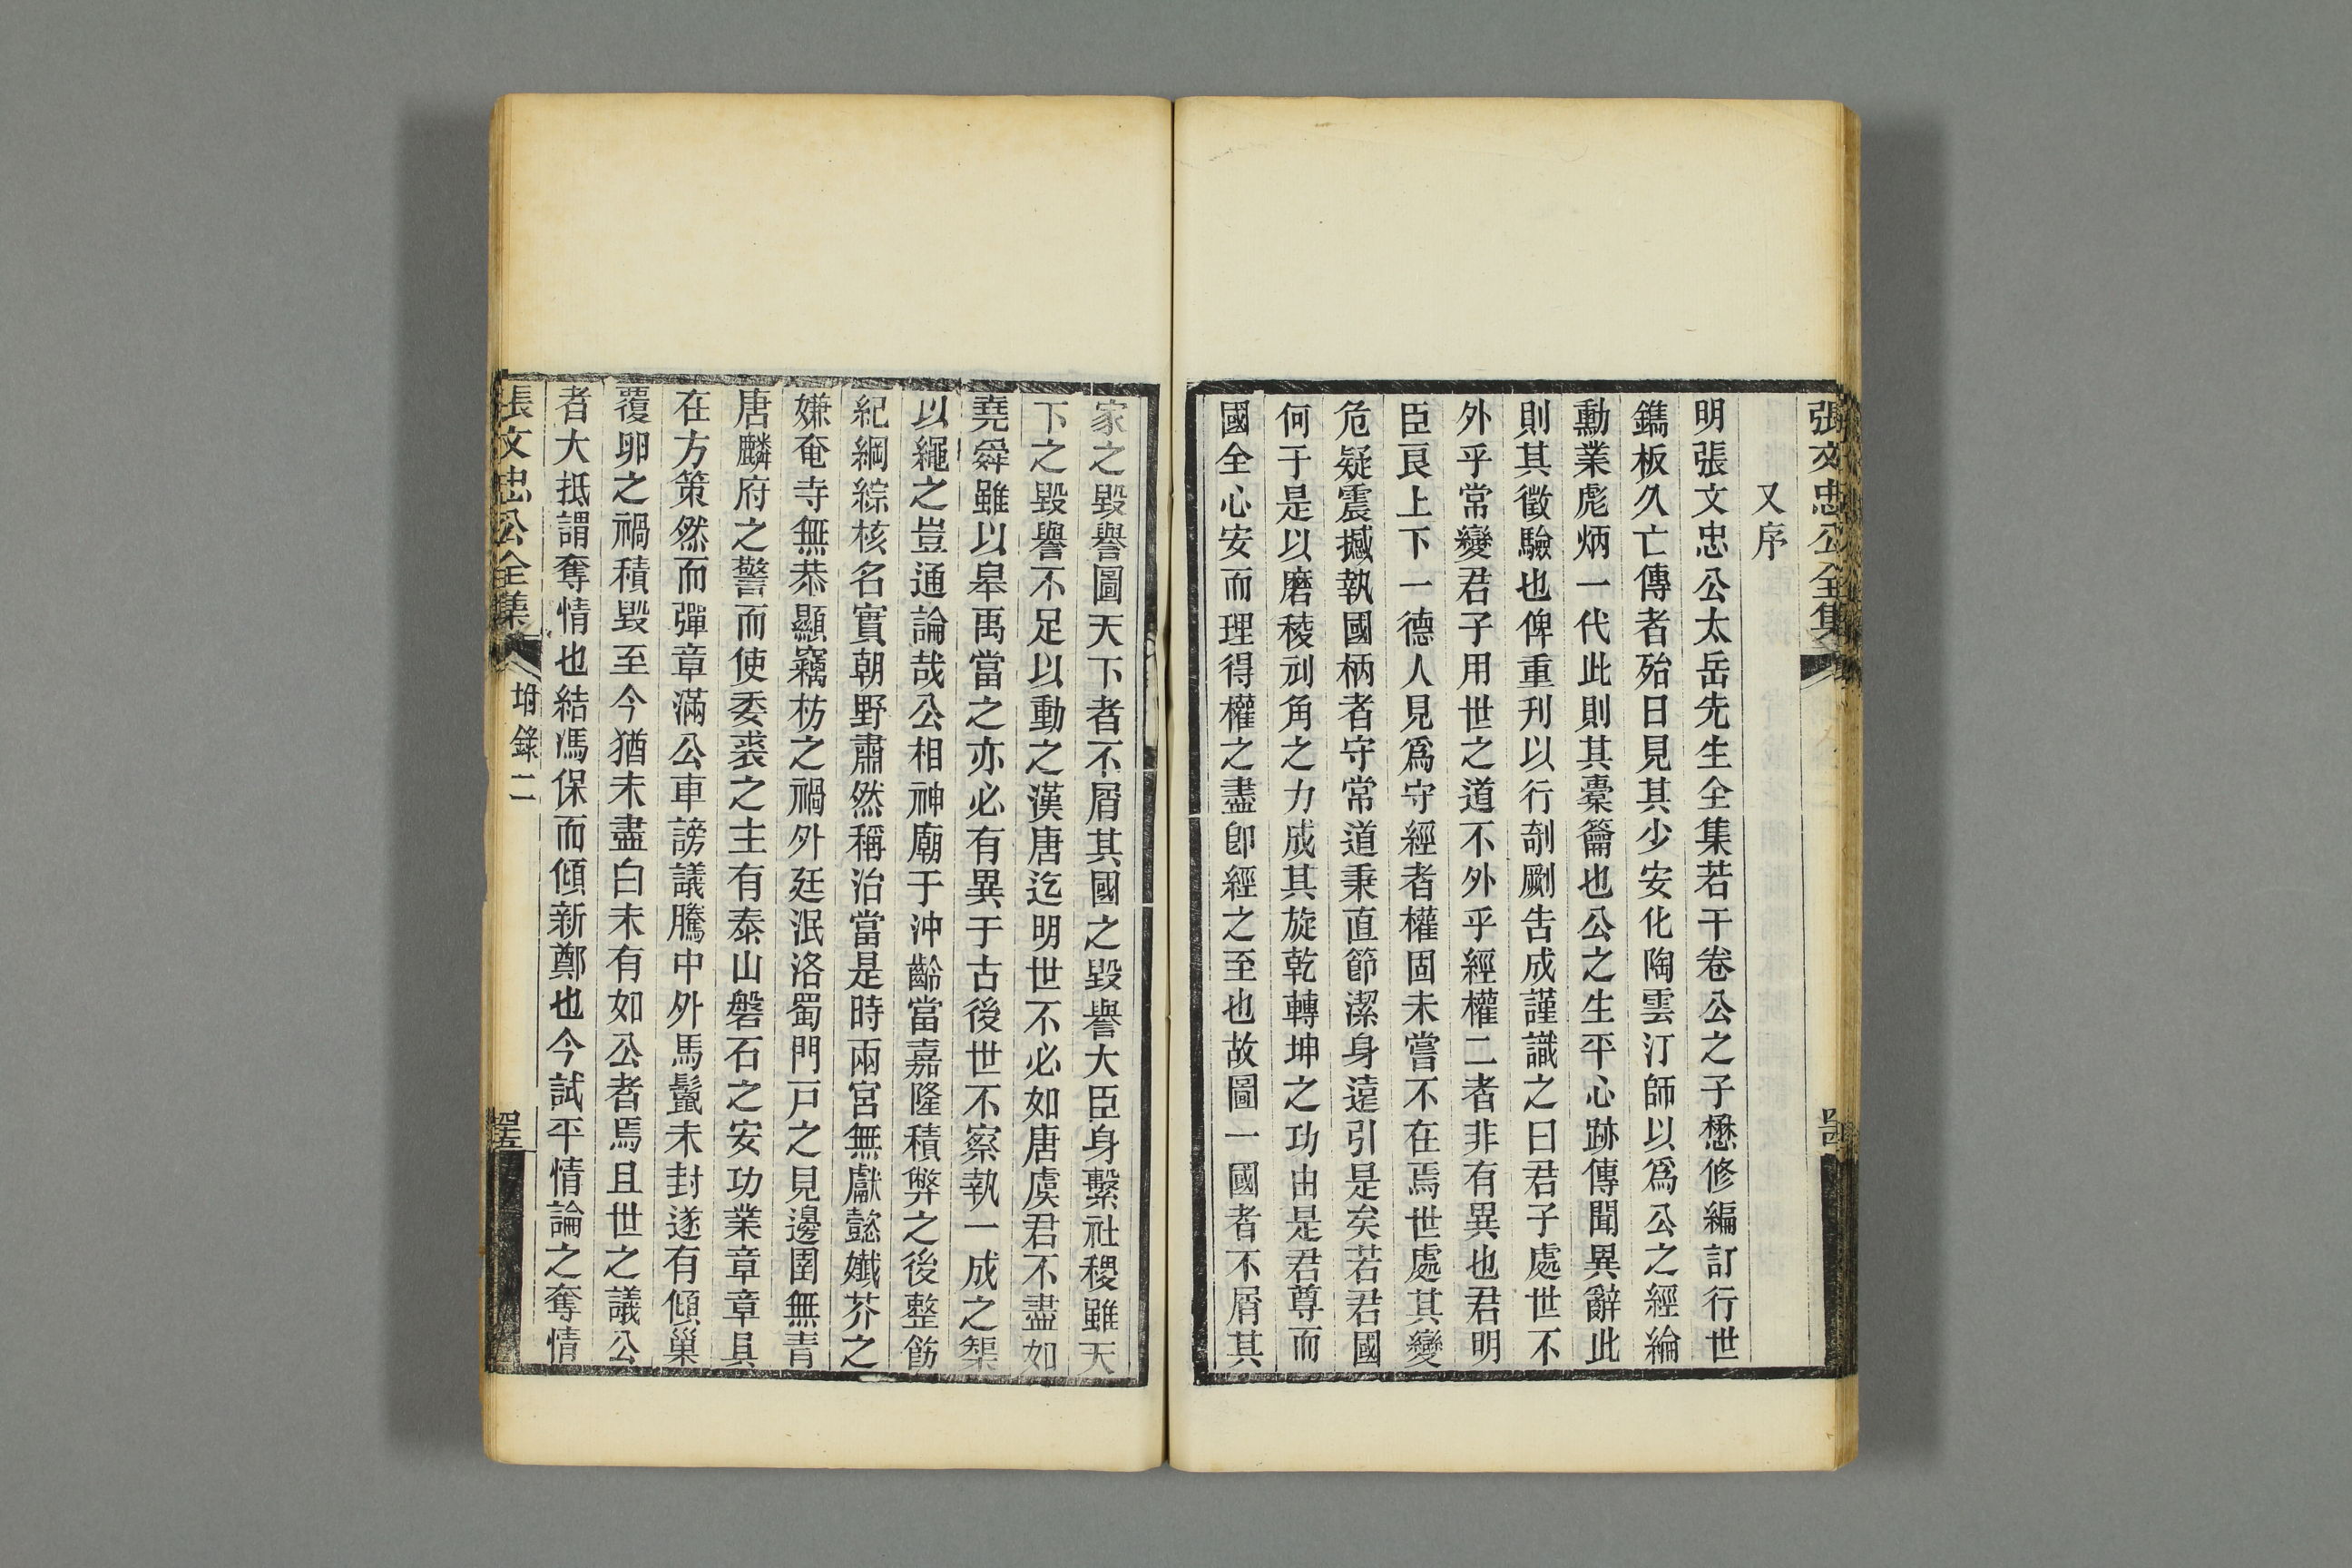 張文忠公全集
又序
明張文忠公太岳先生全集若干卷公之子懋修編訂行世
鐫板久亡傳者殆日見其少安化陶雲汀師以爲公之經綸
勳業彪炳一代此則其橐籥也公之生平心跡傳聞異辭此
則其徵驗也俾重刊以行剞劂告成謹識之曰君子處世不
外乎常變君子用世之道不外乎經權二者非有異也君明
臣良上下一德人見爲守經者權固未嘗不在焉世處其變
危疑震撼執國柄者守常道秉直節潔身遠引是矣若君國
何于是以磨稜刓角之力成其旋乾轉坤之功由是君尊而
國全心安而理得權之盡卽經之至也故圖一國者不屑其
家之毀譽圖天下者不屑其國之毀譽大臣身繫社稷雖天
下之毀譽不足以動之漢唐迄明世不必如唐虞君不盡如
堯舜雖以皋禹當之亦必有異于古後世不察執一成之榘
以繩之豈通論哉公相神廟于沖齡當嘉隆積弊之後整飭
紀綱綜核名實朝野肅然稱治當是時兩宮無獻懿孅芥之
嫌奄寺無恭顯竊枋之禍外廷泯洛蜀門戸之見邊圉無青
唐麟府之警而使委裘之主有泰山磐石之安功業章章具
在方策然而彈章滿公車謗議騰中外馬鬣未封遂有傾巢
覆卵之禍積毀至今猶未盡白未有如公者焉且世之議公
者大抵謂奪情也結馮保而傾新鄭也今試平情論之奪情
張文忠公全集
坿錄二